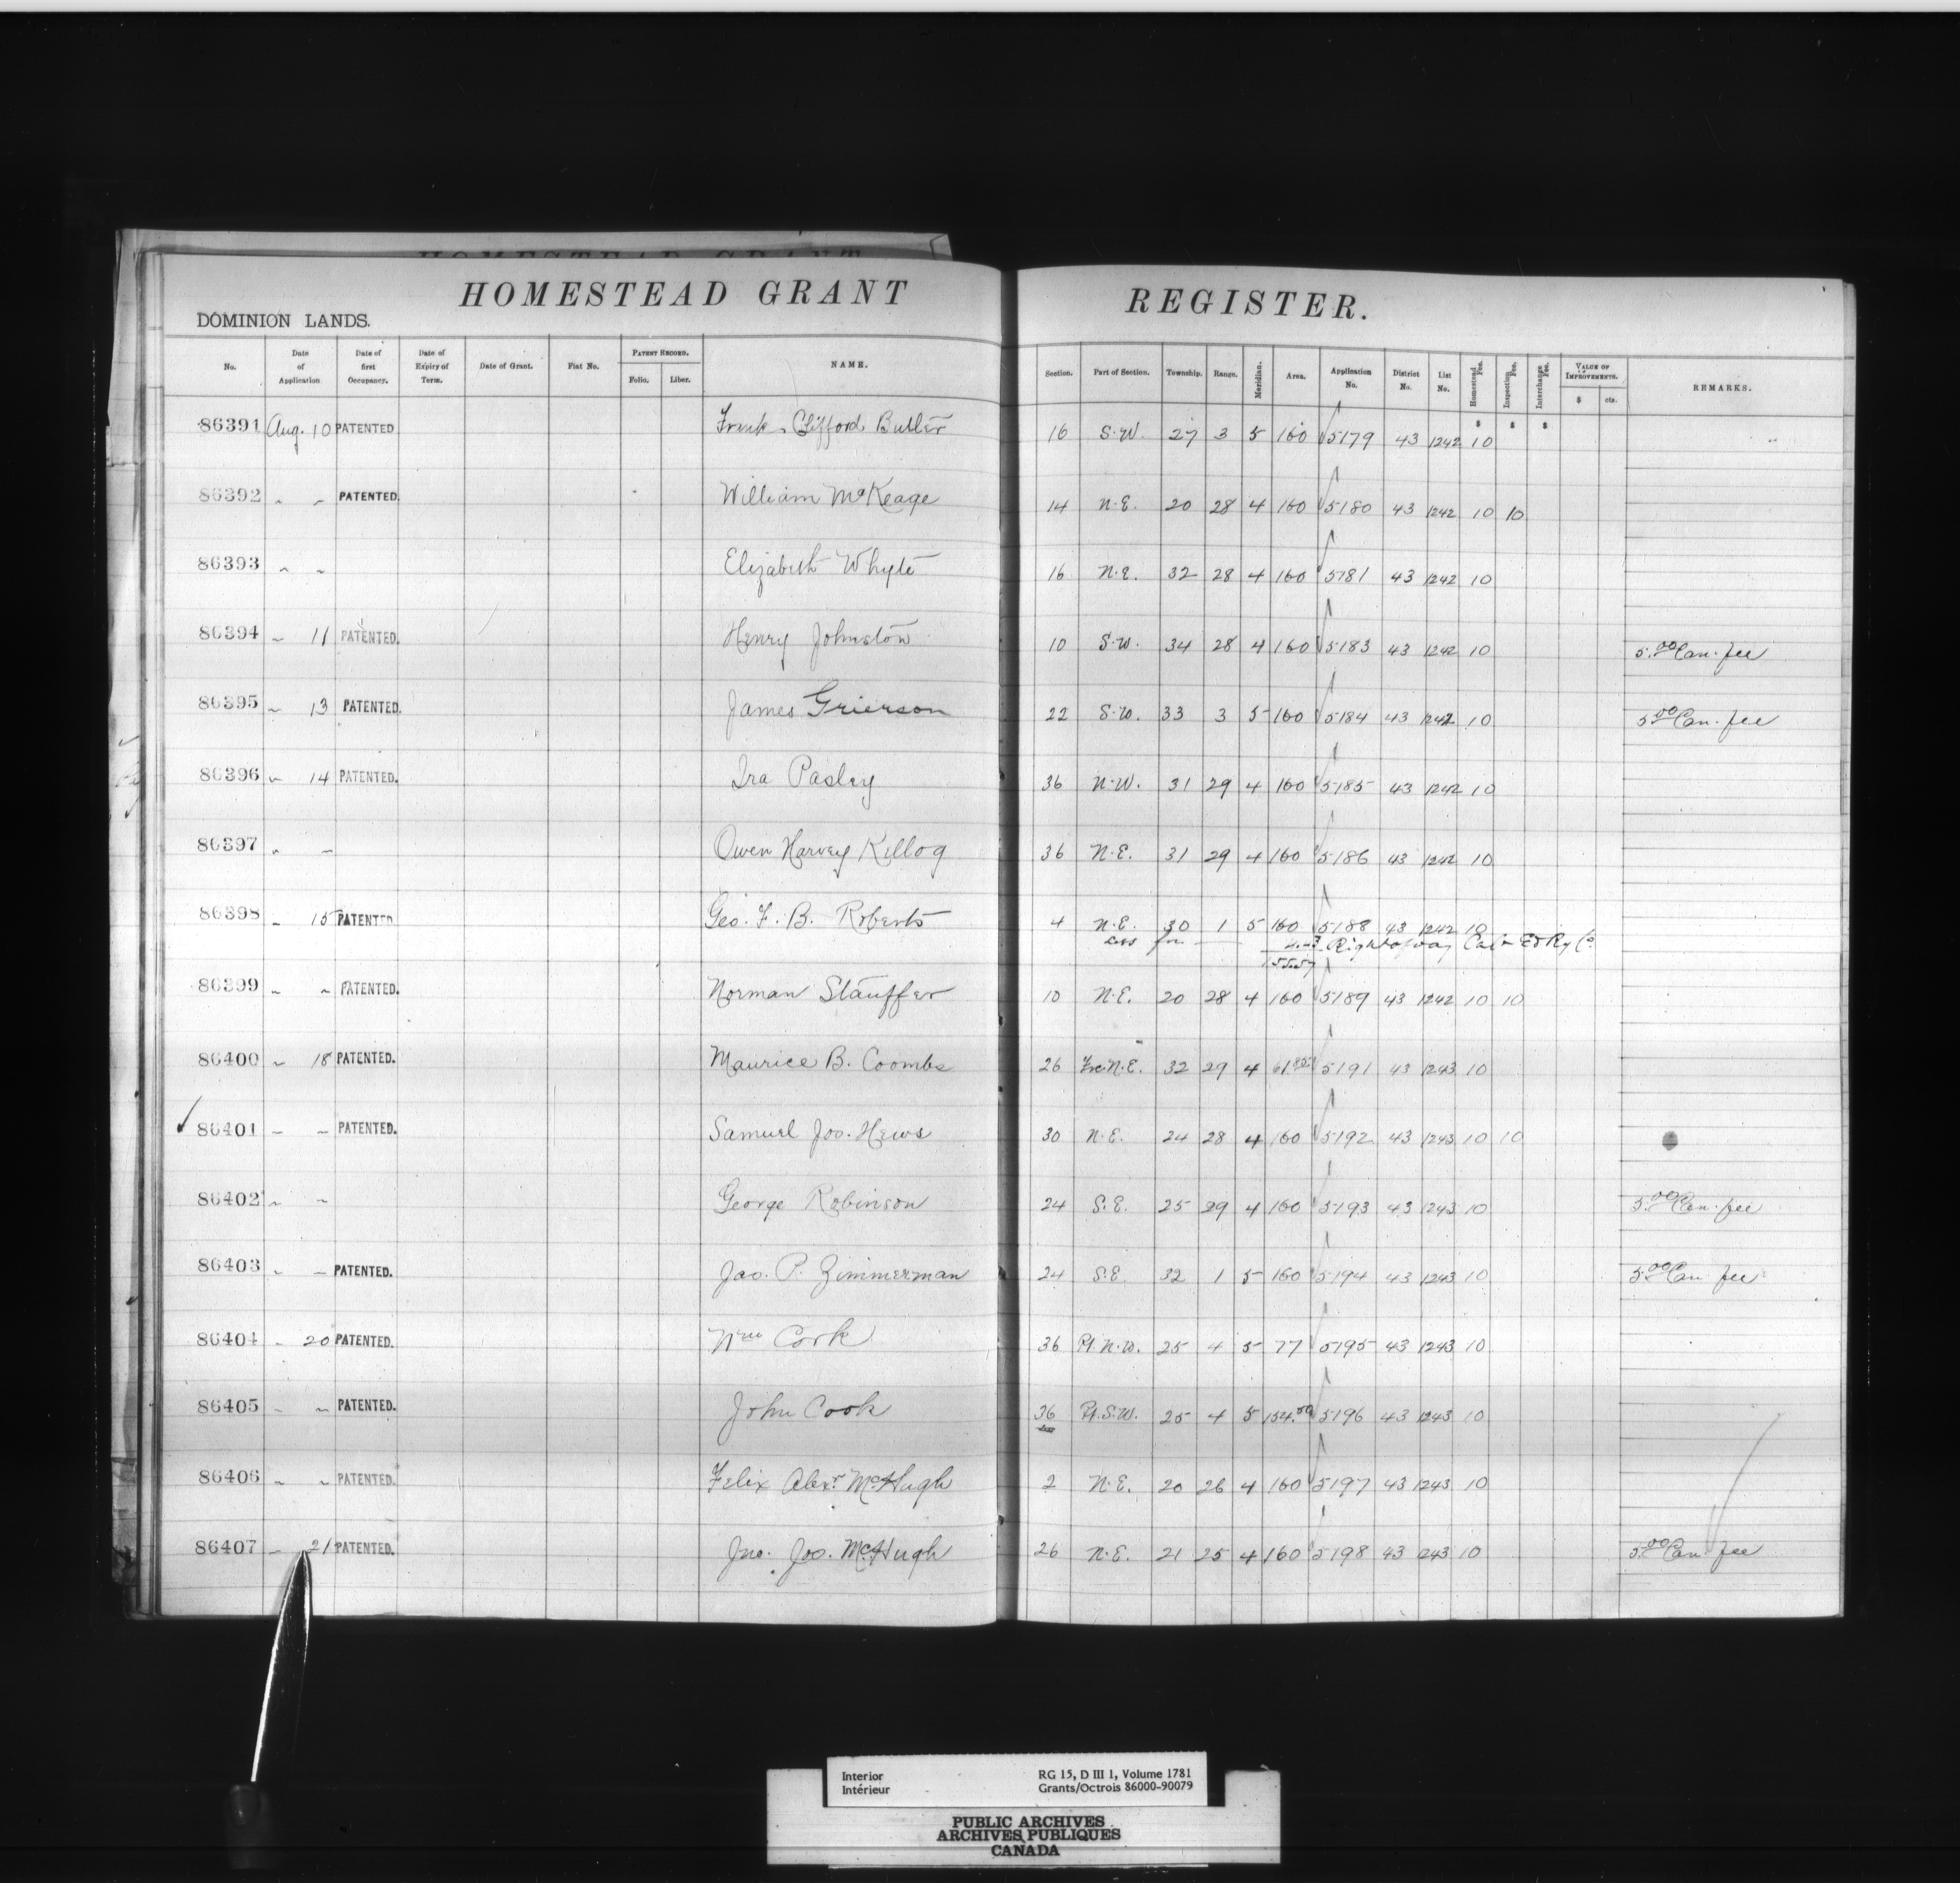 HOMESTEAD GRANT REGISTER.
DOMINION LANDS.
No. Date of Application Date of first Occupancy. Date of Expiry of Term. Date of Grant. Fiat No. PATENT RECORD. Folio. Liber. NAME. Section. Part of Section. Township. Range. Meridian. Area. Application No. District No. List No. Homestead Fee. Inspection Fee. Interchange Fee. VALUE OF IMPROVEMENTS. $ cts. REMARKS.
$ $ $
86391 Aug. 10 PATENTED Frank Clifford Butler 16 S.W. 27 3 5 160 5179 43 1242 10
86392 " " PATENTED. William McKeage 14 N.E. 20 28 4 160 5180 43 1242 10 10
86393 " " Elizabeth Whyte 16 N.E. 32 28 4 160 5181 43 1242 10
86394 " 11 PATENTED. Henry Johnston 10 S.W. 34 28 4 160 5183 43 1242 10 5.00 Can. fee
86395 " 13 PATENTED. James Grierson 22 S.W. 33 3 5 160 5184 43 1242 10 5.00 Can. fee
86396 " 14 PATENTED. Ira Pasley 36 N.W. 31 29 4 160 5185 43 1242 10
86397 " " Owen Harvey Killog 36 N.E. 31 29 4 160 5186 43 1242 10
86398 " 15 PATENTED Geo. F. B. Roberts 4 N.E. 30 1 5 160 5188 43 1242 10
Less for Right of way Cal & Ed Ry Co
86399 " " PATENTED. Norman Stauffer 10 N.E. 20 28 4 160 5189 43 1242 10 10
86400 " 18 PATENTED. Maurice B. Coombs 26 Frc. N.E. 32 29 4 61.85 5191 43 1243 10
86401 " " PATENTED. Samuel Jos. Hews 30 N.E. 24 28 4 160 5192 43 1243 10 10
86402 " " George Robinson 24 S.E. 25 29 4 160 5193 43 1243 10 5.00 Can. fee
86403 " " PATENTED. Jas. P. Zimmerman 24 S.E. 32 1 5 160 5194 43 1243 10 5.00 Can. fee
86404 " 20 PATENTED. Wm Cook 36 Pt. N.W. 25 4 5 77 5195 43 1243 10
86405 " " PATENTED. John Cook 36 Pt. S.W. 25 4 5 154.50 5196 43 1243 10
86406 " " PATENTED. Felix Alexr. McHugh 2 N.E. 20 26 4 160 5197 43 1243 10
86407 " 21 PATENTED. Jno. Jos. McHugh 26 N.E. 21 25 4 160 5198 43 1243 10 5.00 Can. fee
Interior RG 15, D III 1, Volume 1781
Intérieur Grants/Octrois 86000-90079
PUBLIC ARCHIVES
ARCHIVES PUBLIQUES
CANADA